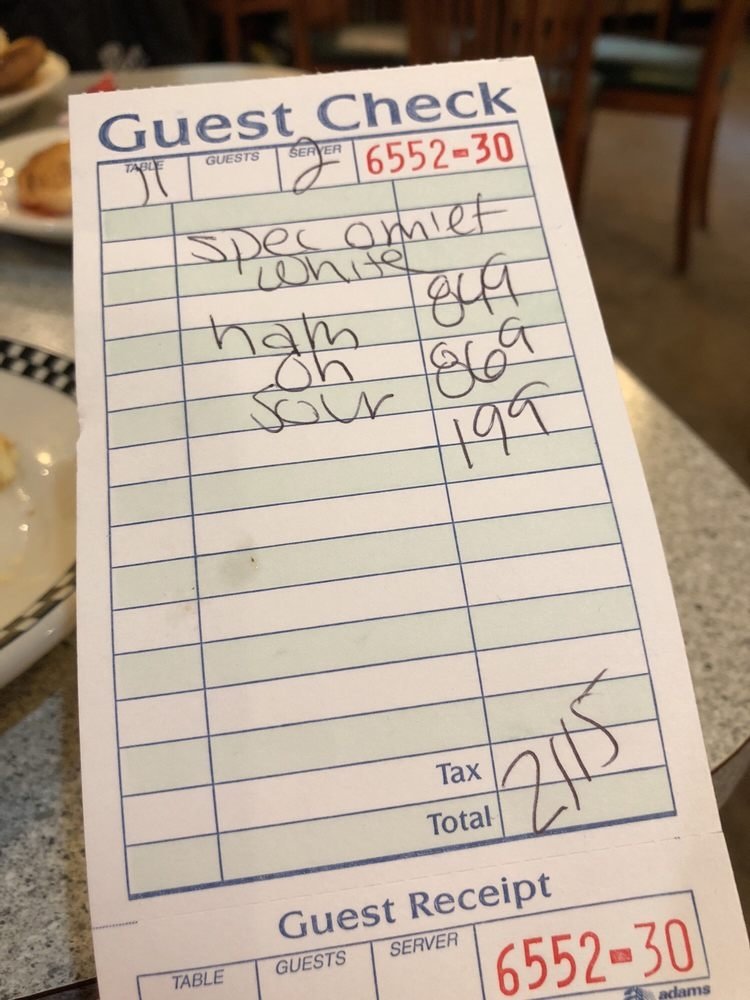 Guest Check
TABLE GUESTS SERVER
11 2 6552-30
spec omlet
white 849
ham
oh 869
sour 199
Tax
Total 2115
Guest Receipt
TABLE GUESTS SERVER
6552-30
adams